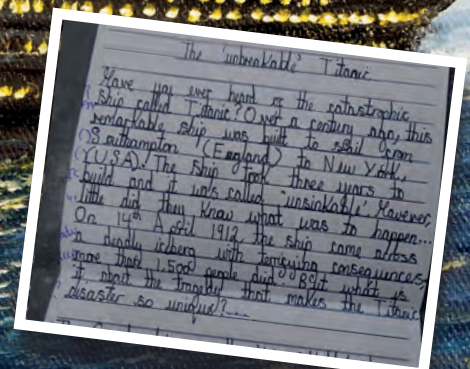 The 'unbreakable' Titanic
Have you ever heard of the catastrophic
ship called Titanic? Over a century ago, this
remarkable ship was built to sail from
Southampton (England) to New York,
(USA). The ship took three years to
build and it was called 'unsinkable'. However,
little did they know what was to happen...
On 14th April 1912, the ship came across
a deadly iceberg with terrifying consequences,
more than 1,500 people died. But what is
it about the tragedy that makes the Titanic
disaster so unique?